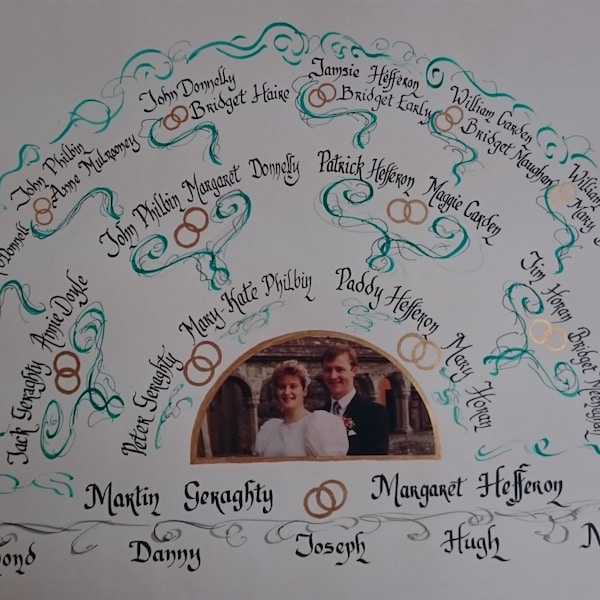 John Donnelly
Bridget Haire
Jamsie Hefferon
Bridget Early
William Garden
Bridget Naughon
William
John Philbin
Anne Mulrooney
O'Donnell
John Philbin
Margaret Donnelly
Patrick Hefferon
Maggie Garden
Jack Geraghty
Annie Doyle
Jim Horan
Bridget
Peter Geraghty
Mary-Kate Philbin
Paddy Hefferon
Mary Horan
Martin Geraghty
Margaret Hefferon
ond
Danny
Joseph
Hugh
N